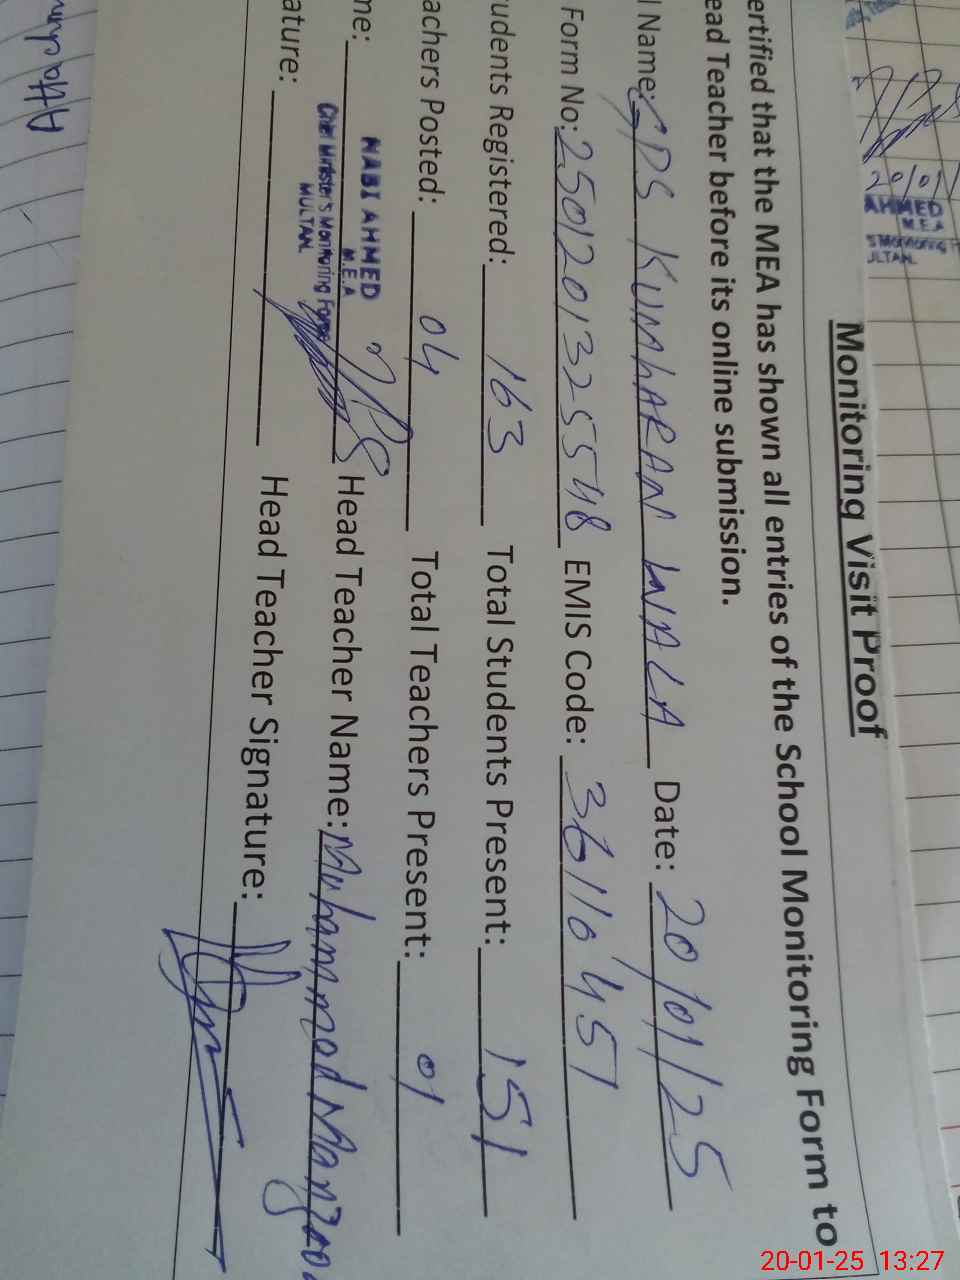 Monitoring Visit Proof
ertified that the MEA has shown all entries of the School Monitoring Form to
ead Teacher before its online submission.
l Name: GPS KUMhARAN WALA Date: 20/01/25
Form No: 2501201325548 EMIS Code: 36110451
udents Registered: 163 Total Students Present: 151
achers Posted: 04 Total Teachers Present: 01
me: NABI AHMED Head Teacher Name: Muhammad Manzoo
M.E.A
Chief Minister's Monitoring Force
MULTAN.
ature: Head Teacher Signature:
20/01
AHMED
MEA
S Monitoring
ULTAN.
20-01-25 13:27